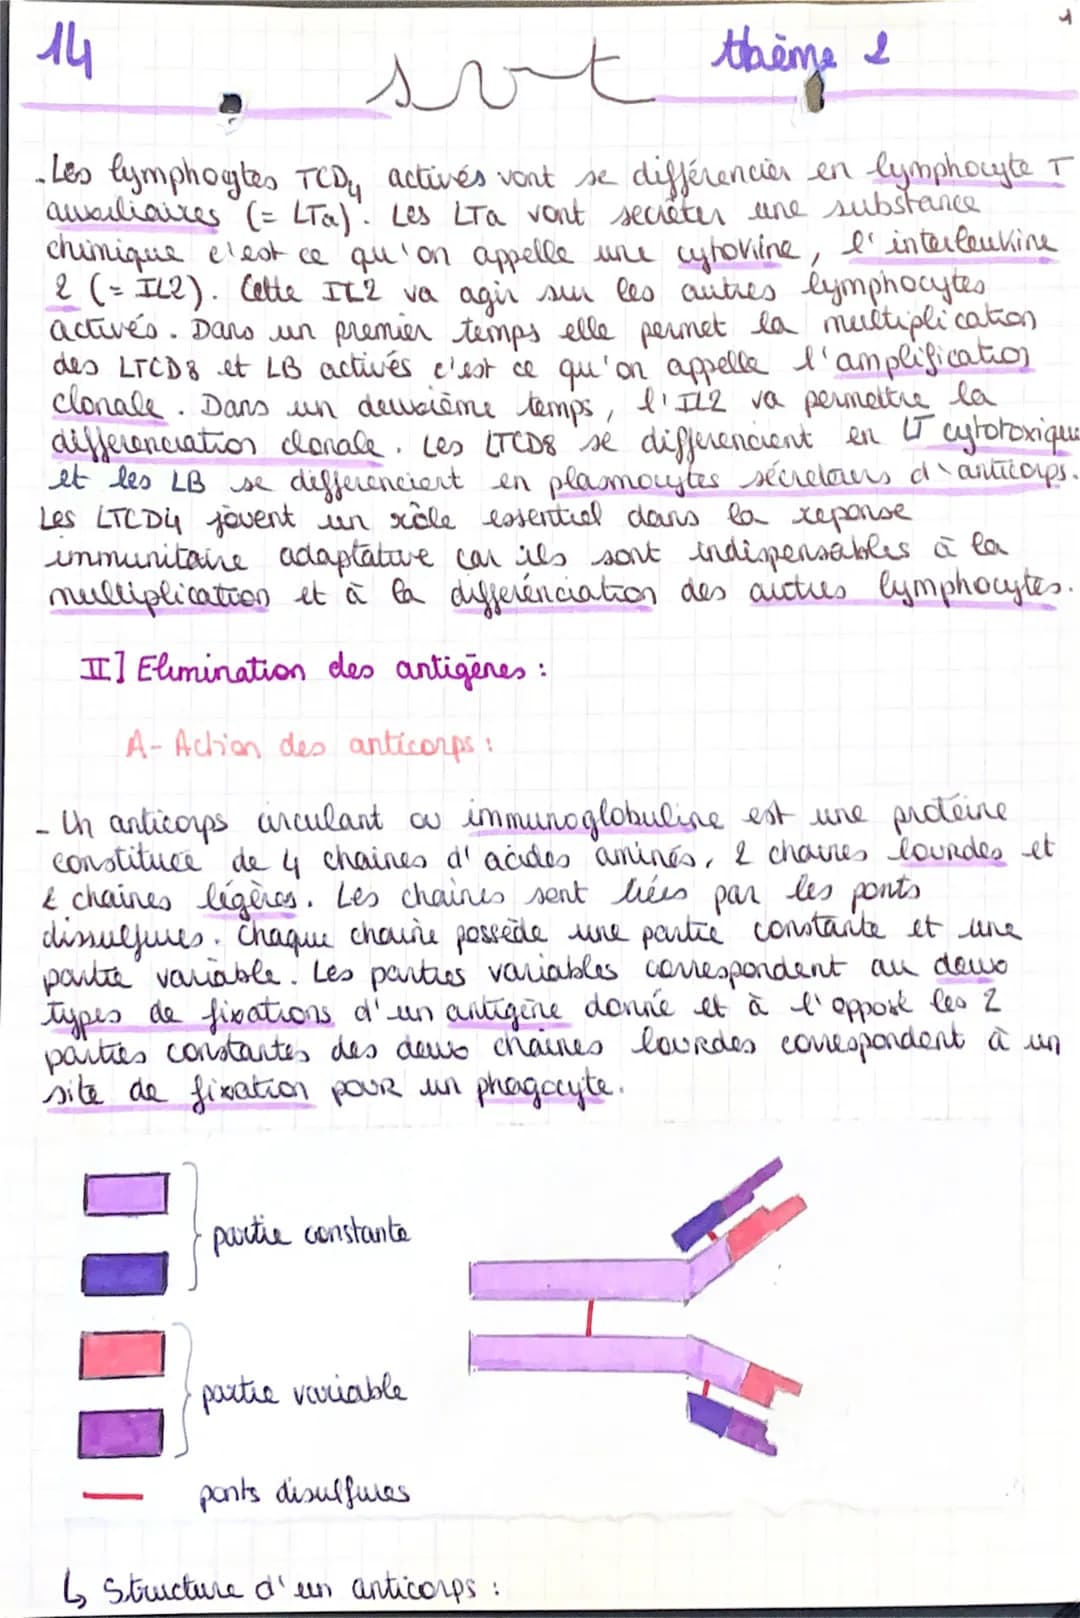 14
svt
thème 2
1
- Les lymphocytes TCD4 activés vont se différencier en lymphocyte T
auxiliaires (= LTa). Les LTa vont secréter une substance
chimique c'est ce qu'on appelle une cytokine, l'interleukine
2 (= IL2). Cette IL2 va agir sur les autres lymphocytes
activés. Dans un premier temps elle permet la multiplication
des LTCD8 et LB activés c'est ce qu'on appelle l'amplification
clonale. Dans un deuxième temps, l'IL2 va permettre la
différenciation clonale. Les LTCD8 se différencient en LT cytotoxique
et les LB se différencient en plasmocytes sécréteurs d'anticorps.
Les LTCD4 jouent un rôle essentiel dans la reponse
immunitaire adaptative car ils sont indispensables à la
multiplication et à la différenciation des autres lymphocytes.
II] Elimination des antigènes :
A- Action des anticorps :
- Un anticorps circulant ou immunoglobuline est une protéine
constituée de 4 chaines d'acides aminés, 2 chaines lourdes et
2 chaines légères. Les chaines sont liées par les ponts
disulfures. Chaque chaine possède une partie constante et une
partie variable. Les parties variables correspondent au deux
types de fixations d'un antigène donné et à l'opposé les 2
parties constantes des deux chaines lourdes correspondent à un
site de fixation pour un phagocyte.
partie constante
partie variable
ponts disulfures
↳ Structure d'un anticorps :